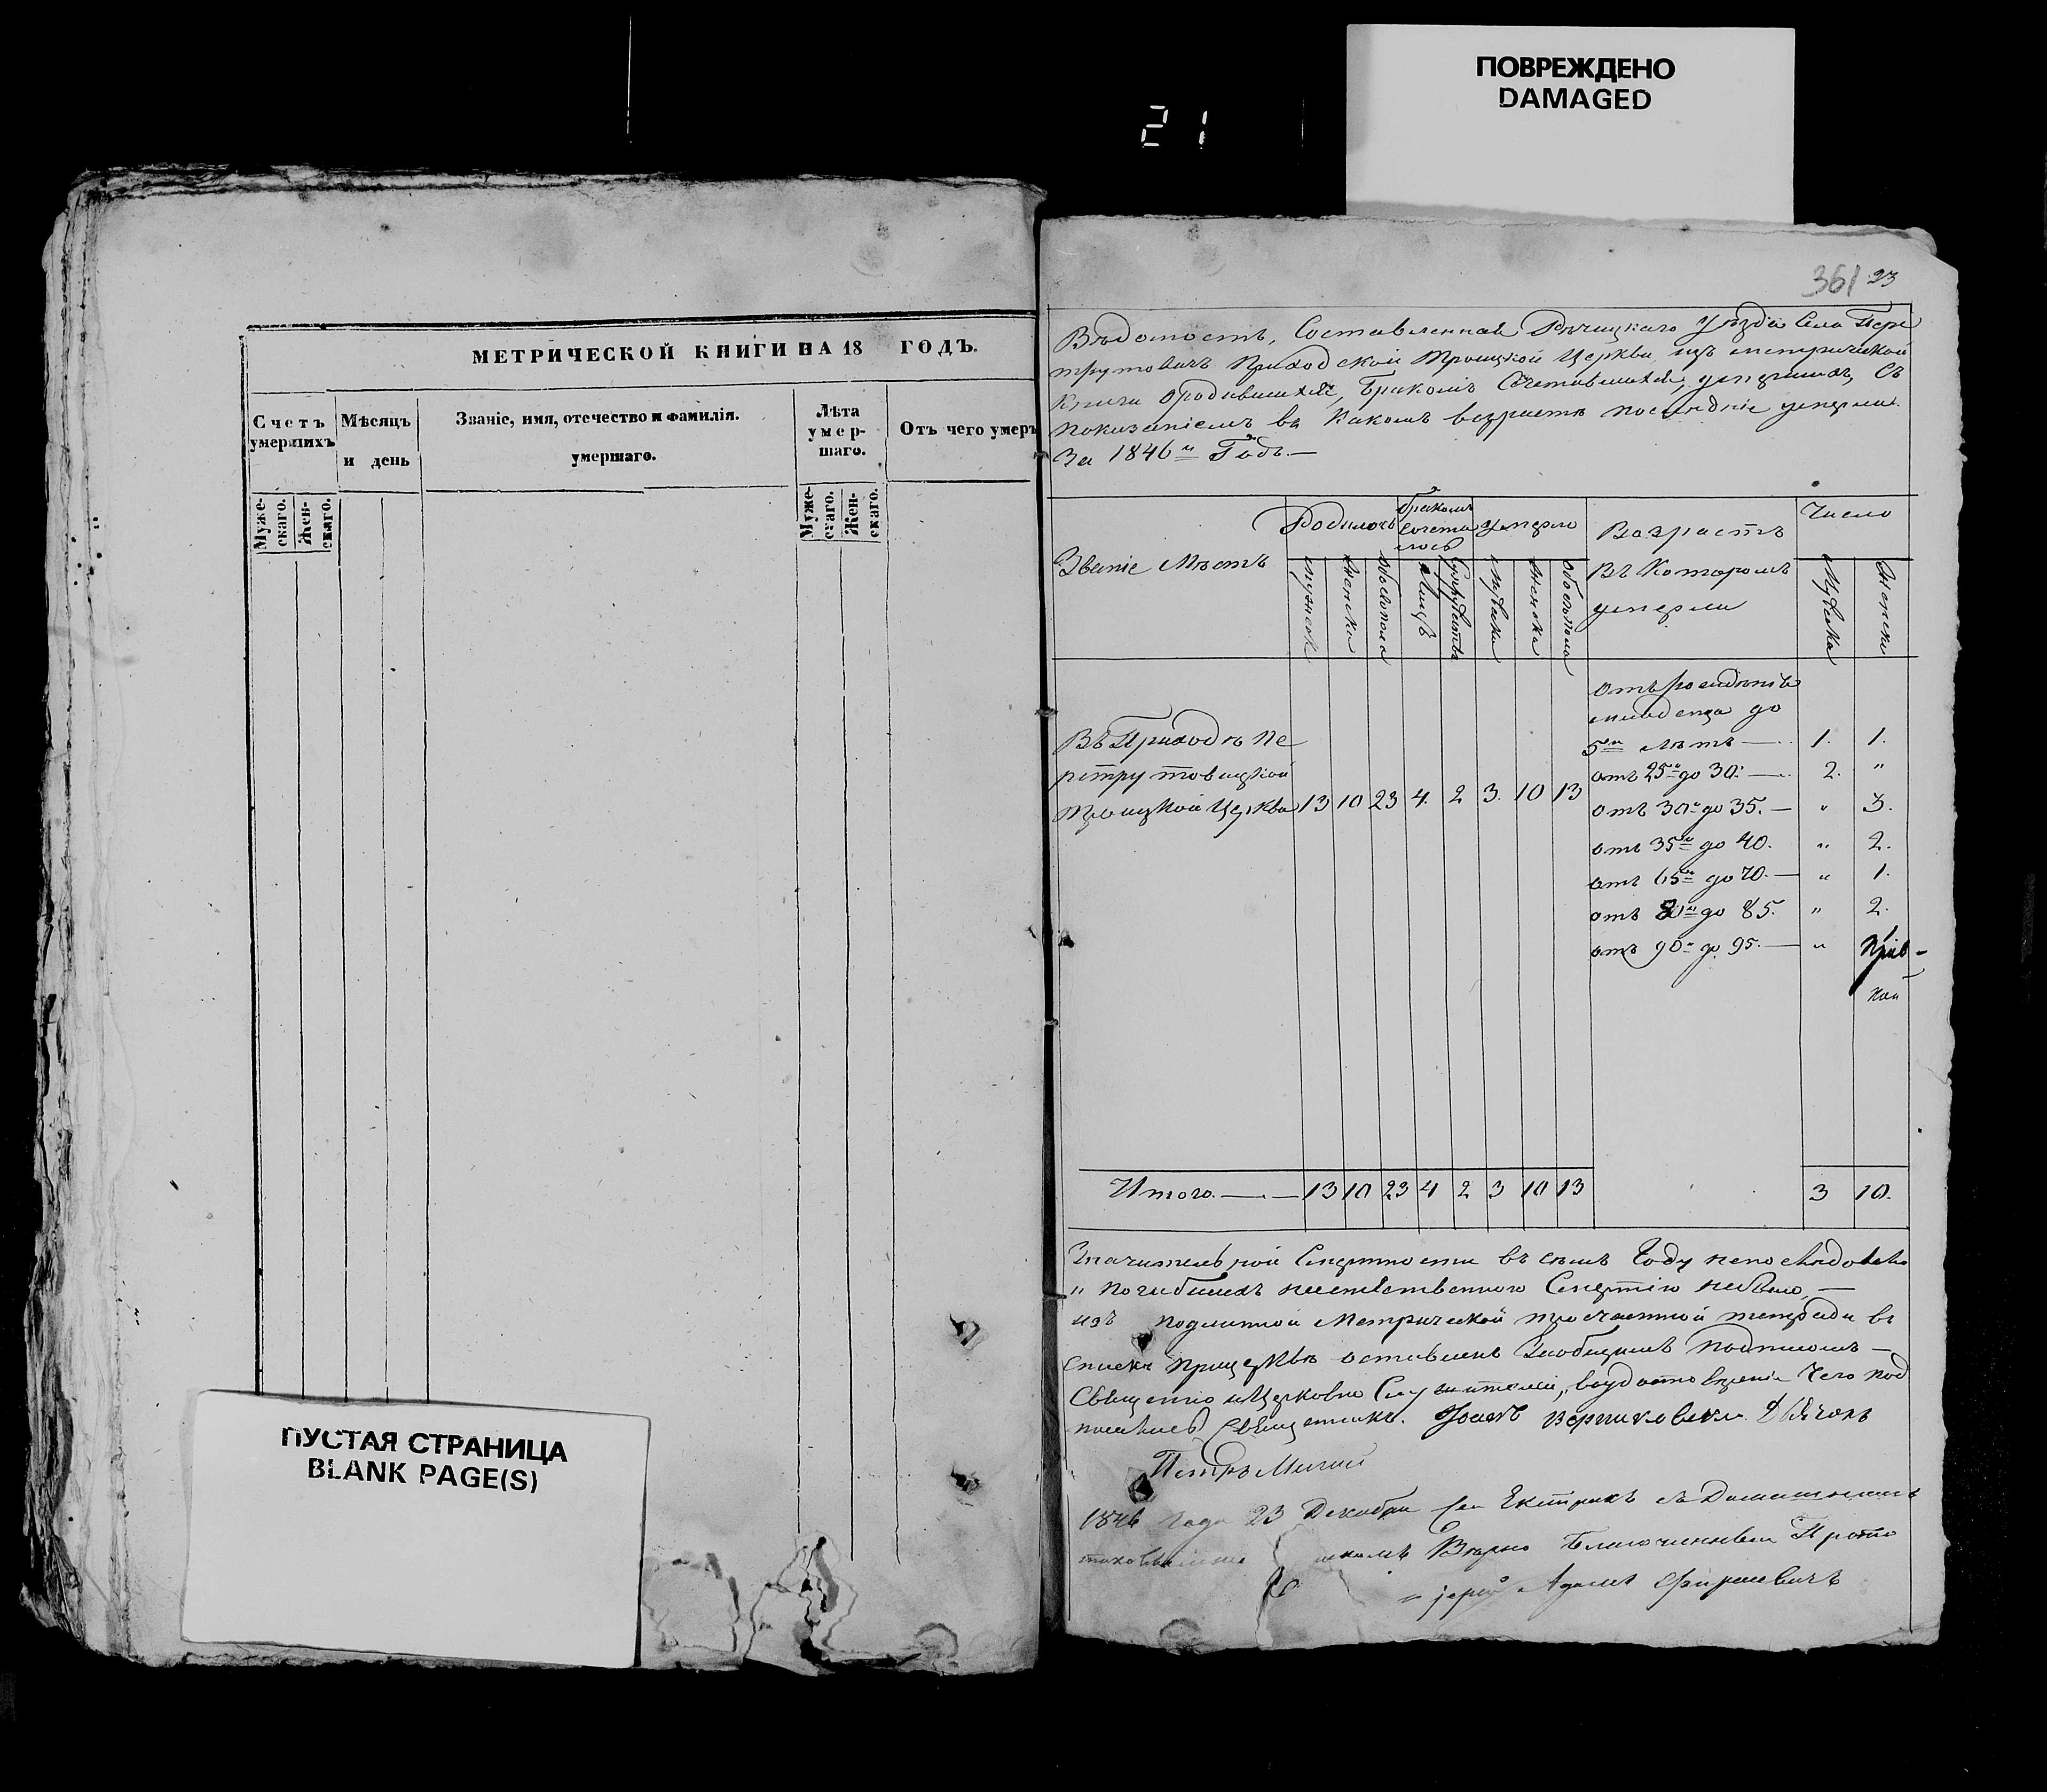 ПОВРЕЖДЕНО
DAMAGED
21
361 23
МЕТРИЧЕСКОЙ КНИГИ НА 18 ГОДЪ.
Счетъ умершихъ
Мѣсяцъ и день
Званіе, имя, отечество и фамилія.
умершаго.
Лѣта умер-шаго.
Отъ чего умеръ
Муже-скаго.
Жен-скаго.
Муже-скаго.
Жен-скаго.
ПУСТАЯ СТРАНИЦА
BLANK PAGE(S)
Вѣдомость, Составленная Рѣчицкаго Уѣзда Села Пере
трутовичъ Приходской Троицкой Церкви изъ метрической
книги о родившихся, бракомъ Сочетавшихся, умершихъ, Съ
показаніемъ въ какомъ возрастѣ последніе умерли
За 1846й Годъ.—
Званіе Мѣстъ
Родилось
бракомъ сочета лось
умерло
Возрастъ
въ Которомъ
умерли
Число
мужеска
женска
обоегопола
Лицъ
Супружествъ
мужеска
женска
обоегопола
Мужеска
женска
Въ Приходѣ Пе
ретрутовицкой
Троицкой Церкви 13 10 23 4. 2 3. 10 13
отъ рожденія
младенца до
5ти лѣтъ — 1. 1.
отъ 25и до 30. — 2. "
отъ 30и до 35. — " 3.
отъ 35и до 40. " 2.
отъ 65и до 70. — " 1.
отъ 80и до 85. " 2.
отъ 90и до 95. — " 1
Итого. — 13 10 23 4 2 3 10 13 3 10.
Значительной Смертности въ семъ Году непоследовало
и погибшихъ неестественною Смертію небыло, —
изъ подлинной Метрической троечастной тетради въ
Списки прицерквѣ оставленъ Заобщимъ подписомъ —
Священно и Церковно Служителей, воудостовереніи Чего под
писались Священникъ. Дьячокъ
Петръ
1846 Года 23 Декабря
Вѣрно Благочинный Прото
іерей Адамъ